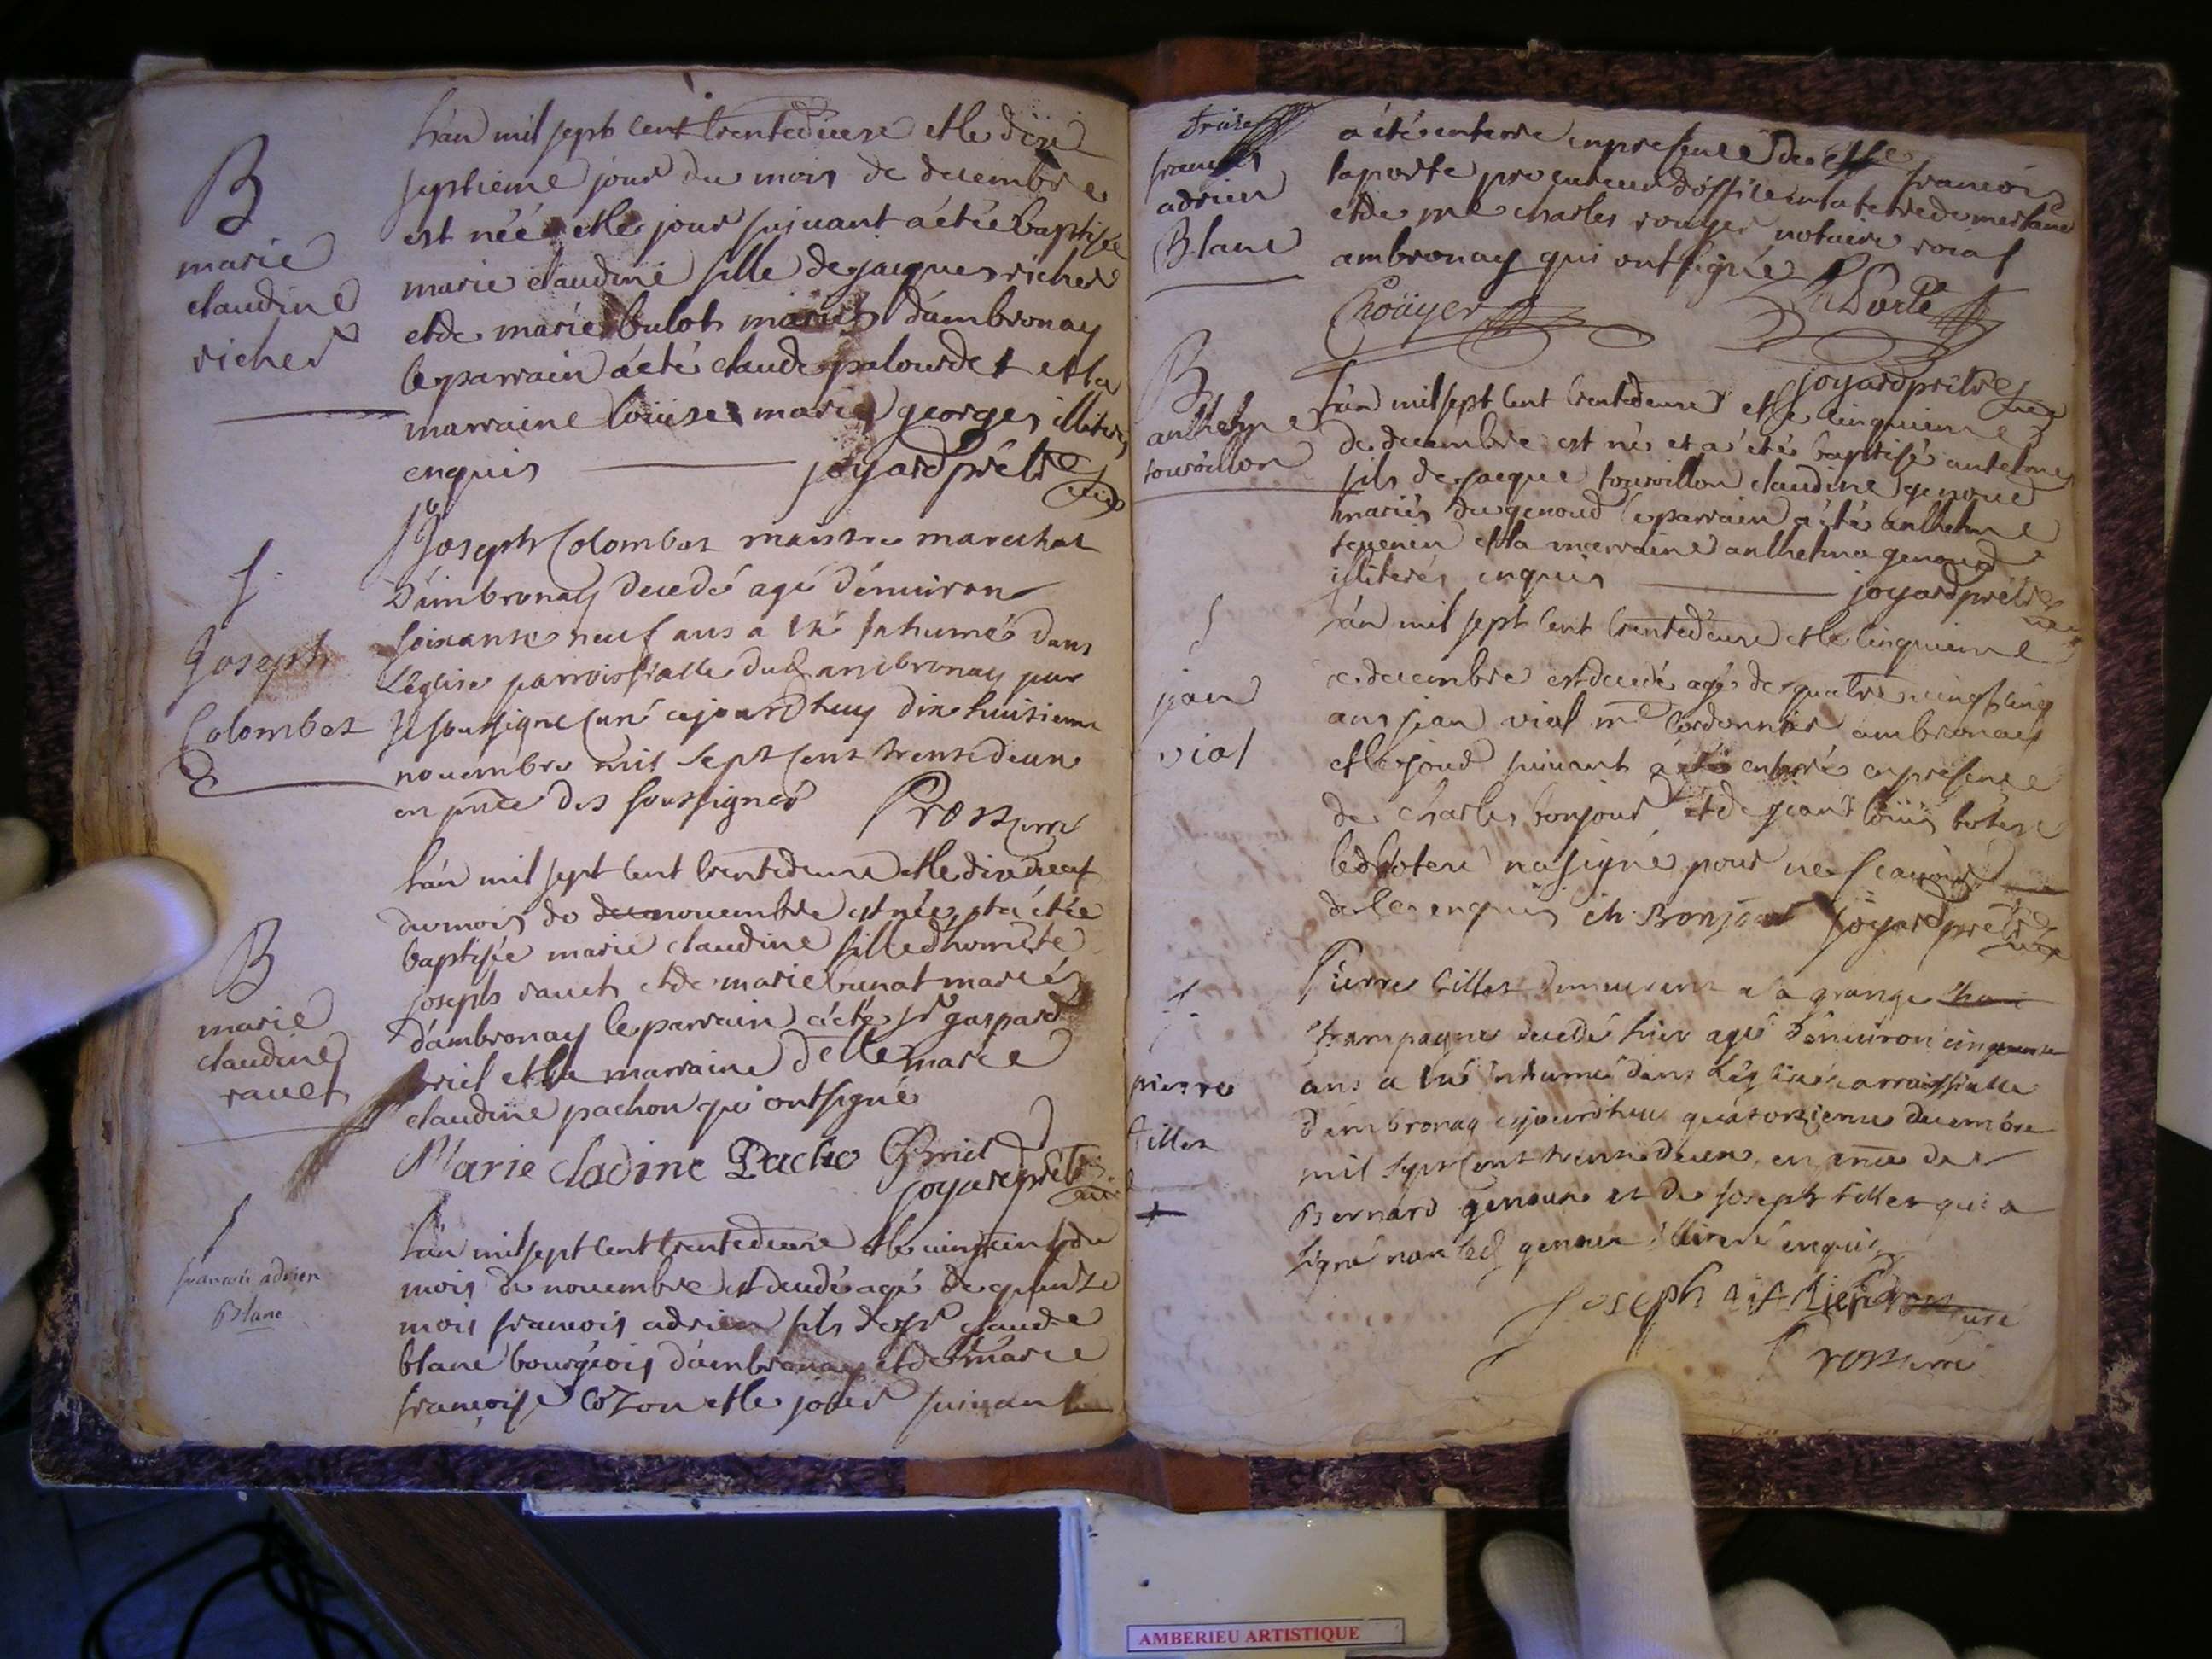 B
marie
claudine
richer
l'an mil sept cent trentedeuxe et le dixe
septieme jour du mois de decembre
est néé et le jour suivant a étée baptisée
marie claudine fille de jacques richer
et de marie bulot mariés d'ambronay
le parrain a été claude palourdet et la
marraine loüise marie georges illiterés
enquis joyard prêtre
S
Joseph
Colombet
Joseph Colombet maistre mareschal
D'ambronay decedé agé d'enuiron
soixante neuf ans a été Inhumé dans
L'église parroissialle dud ambronay par
Je soussigné curé cejourdhuy dix huitieme
nouembre mil sept cent trente deux
en pnce des soussignes
B
marie
claudine
rauet
l'an mil sept cent trentedeuxe et le dixe neuf
du mois de nouembre est née et a étée
baptisée marie claudine fille d'honnete
joseph rauet et de marie bunat mariés
d'ambronay le parrain a été sr gaspard
briel et la marraine delle marie
claudine pachon qui ont signé
Marie cladine Pacho Briel
joyard prêtre
S
francois adrien
Blanc
l'an mil sept cent trentedeuxe et le
mois de nouembre est decedé agé de quinze
mois francois adrien fils de sr claude
blanc bourgeois d'ambronay et de marie
francoise cozon et le jour suivant
francois
adrien
Blanc
a été enterré en presence de francois
laporte procureur d'office en la terre de
et de me charles rouyer notaire roial
ambronay qui ont signé
Roüyer La Porte
joyard prêtre
B
anthelme
touruillon
l'an mil sept cent trentedeuxe et le cinquieme
de decembre est né et a été baptisé antelme
fils de jacque touruillon claudine genoud
mariés du genoud le parrain a été anthelme
teuenin et la marraine anthelma genoud
illiterés enquis joyard prêtre
S
jean
vial
l'an mil sept cent trentedeuxe et le cinquieme
decembre est decedé agé de quatre vingt cinq
ans jean vial me cordonnier ambronay
et le jour suivant a été enterré en presence
de charles bonjour et de jean loüis botere
led botere na signé pour ne scauoir
de ce enquis ch. Bonjour joyard prêtre
S
pierre
tillet
Pierre tillet demeurant a la grange
champagne decedé hier agé d'enuiron cinquante
ans a été inhumé dans L'église parroissialle
D'ambronay cejourdhuy quatorzieme decembre
mil sept cent trente deux en pnce de
Bernard genoux et de Joseph tillet qui a
signé non led genoux illiteré enquis
Joseph
AMBERIEU ARTISTIQUE